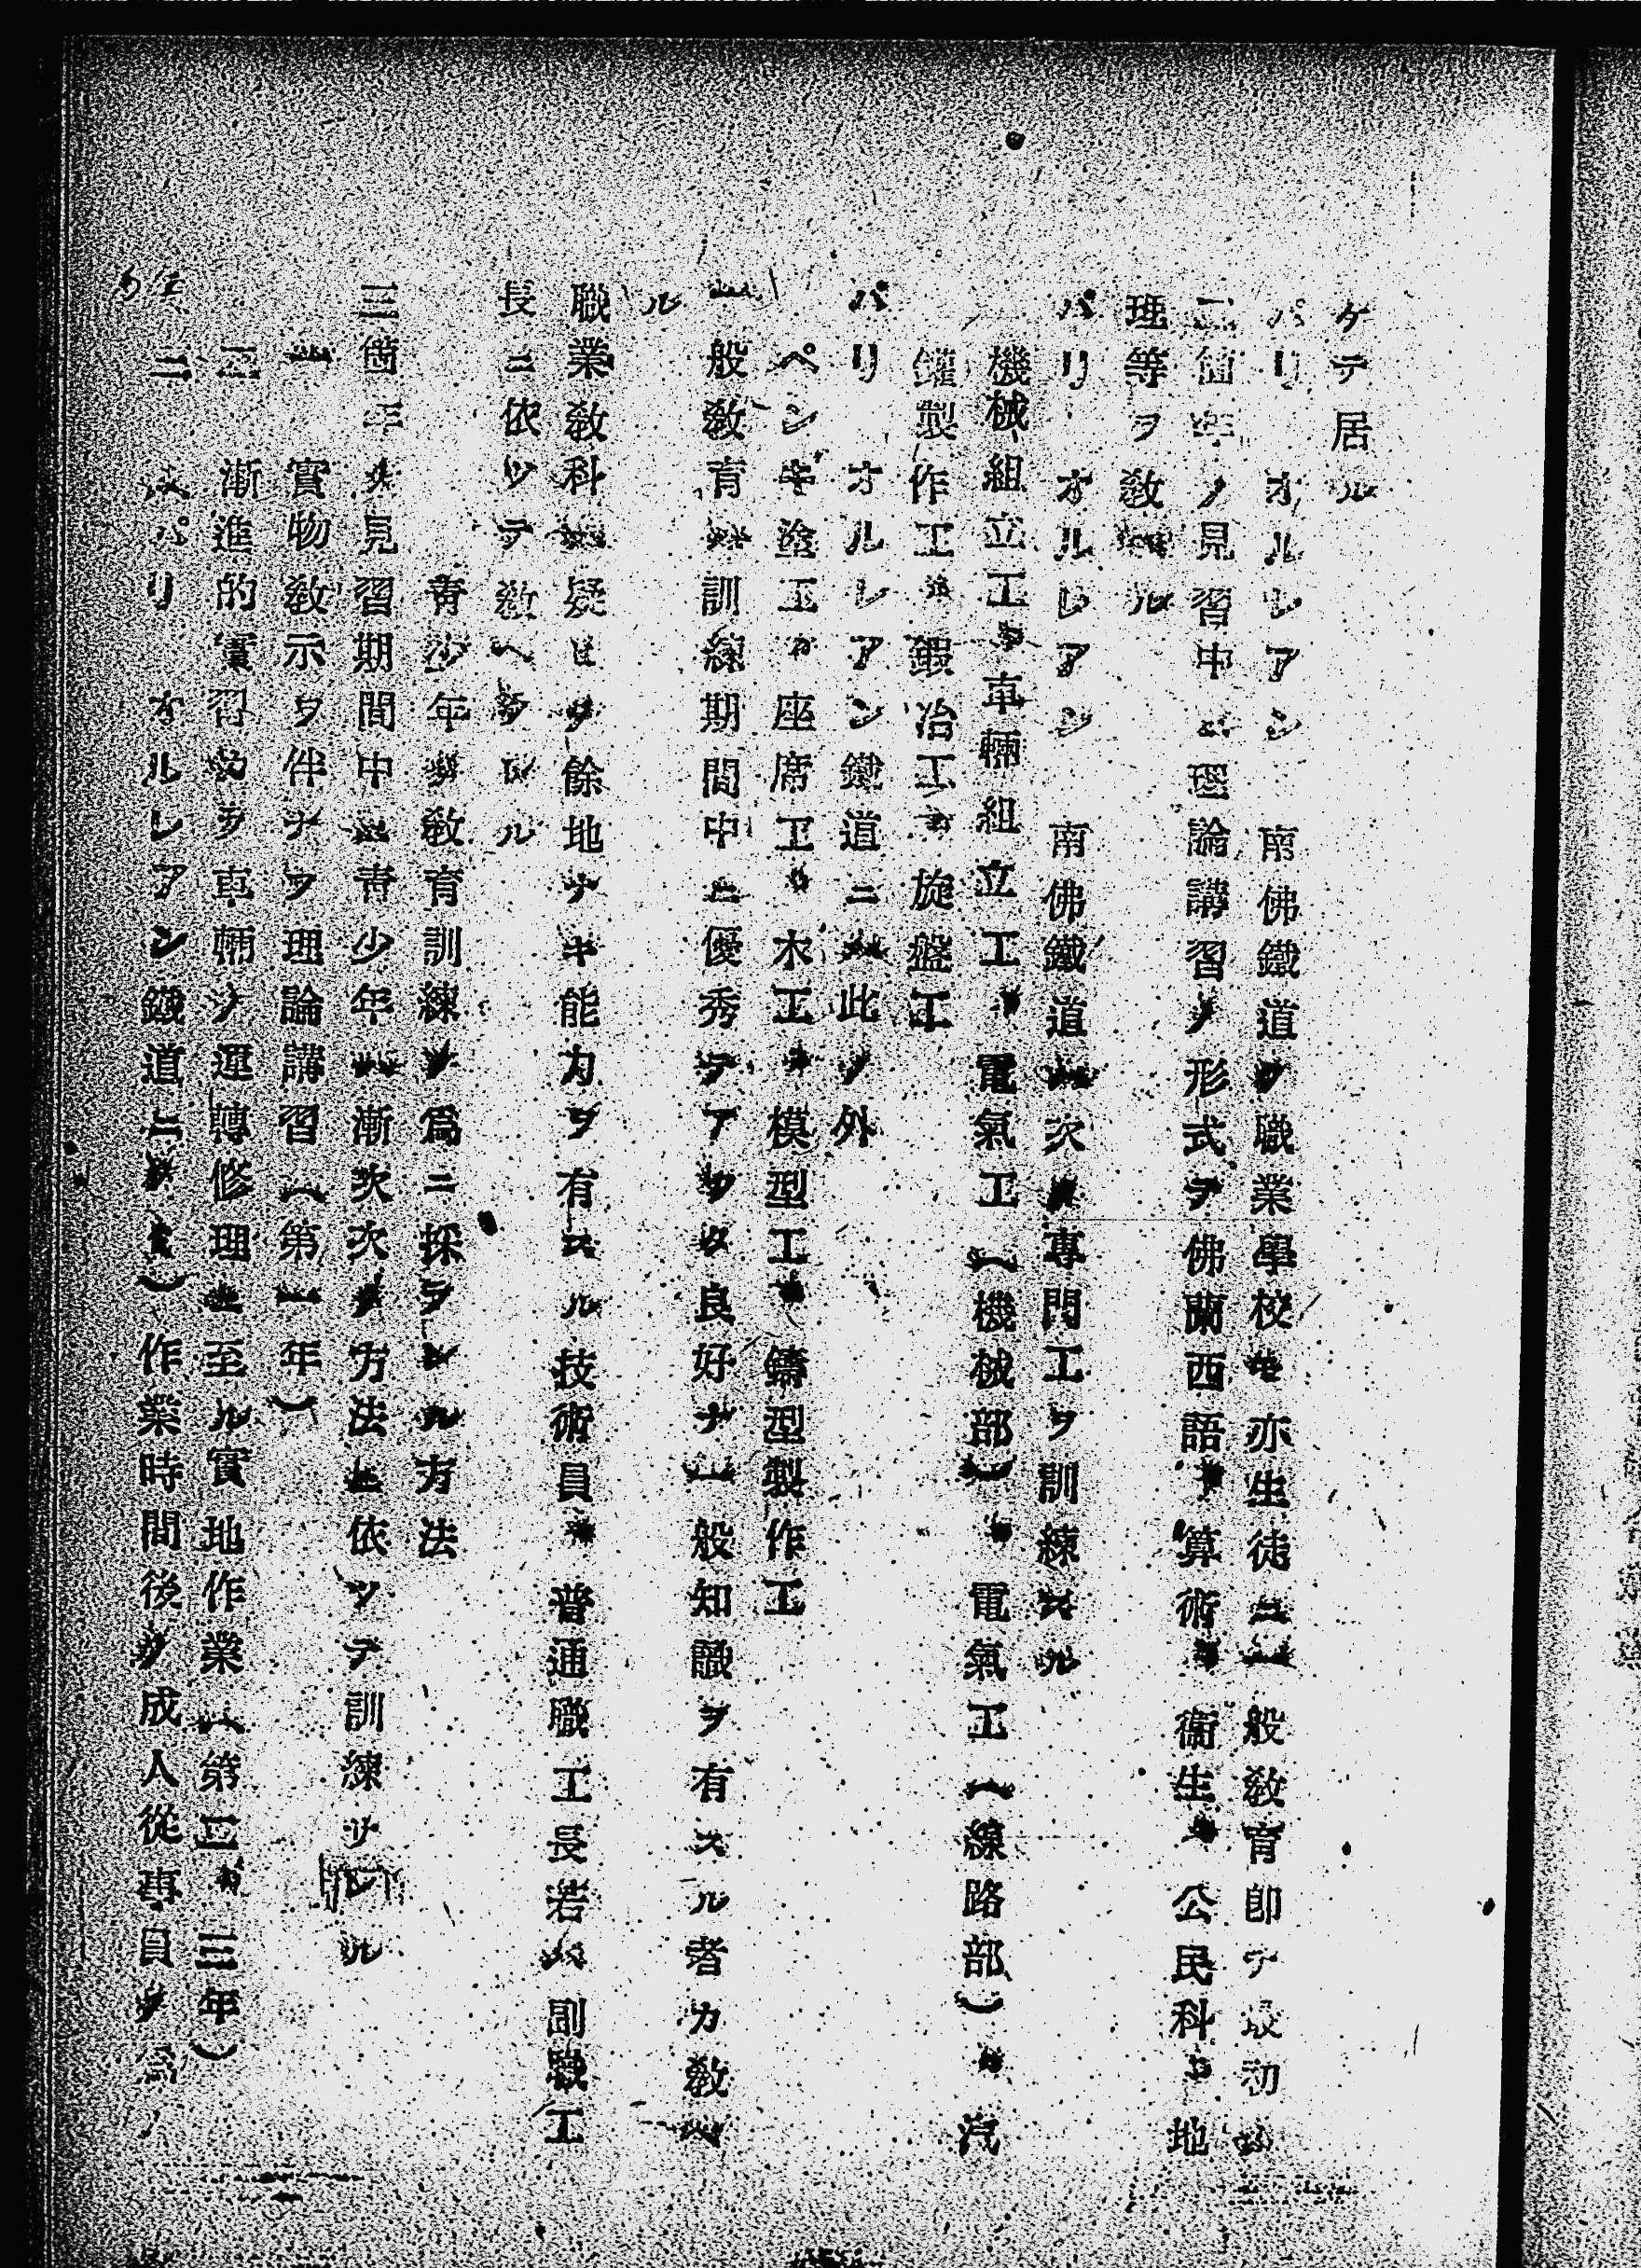 ケテ居ル
パリ オルレアン 南佛鐵道ノ職業學校モ亦生徒ニ一般教育卽チ最初ハ
二箇年ノ見習中ニ理論講習ノ形式デ佛蘭西語、算術、衞生、公民科、地
理等ヲ教ヘル
パリ オルレアン 南佛鐵道ハ次ノ專門工ヲ訓練スル
機械組立工、車輛組立工、電氣工(機械部)、電氣工(線路部)、汽
鑵製作工、鍛冶工、旋盤工
パリ オルレアン鐵道ニハ此ノ外
ペンキ塗工、座席工、木工、模型工、鑄型製作工
一般教育ハ訓練期間中ニ優秀デアツタ良好ナ一般知識ヲ有スル者カ教ヘ
ル
職業教科ハ疑ヒノ餘地ナキ能力ヲ有スル技術員、普通職工長若ハ副職工
長ニ依ツテ教ヘラレル
靑少年ノ教育訓練ノ爲ニ採ラレル方法
三箇年ノ見習期間中ニ靑少年ハ漸次次ノ方法ニ依ツテ訓練サレル
一 實物教示ヲ伴ナフ理論講習(第一年)
二 漸進的實習カラ車輛ノ運轉修理ニ至ル實地作業(第二、三年)
パリ オルレアン鐵道ニ 作業時間後ノ成人從事員ノ爲ノ